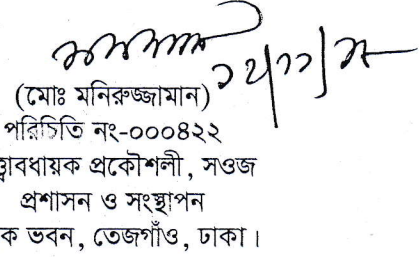 (মোঃ মনিরুজ্জামান)
পরিচিতি নং-০০০৪২২
ত্ত্বাবধায়ক প্রকৌশলী, সওজ
প্রশাসন ও সংস্থাপন
ক ভবন, তেজগাঁও, ঢাকা।